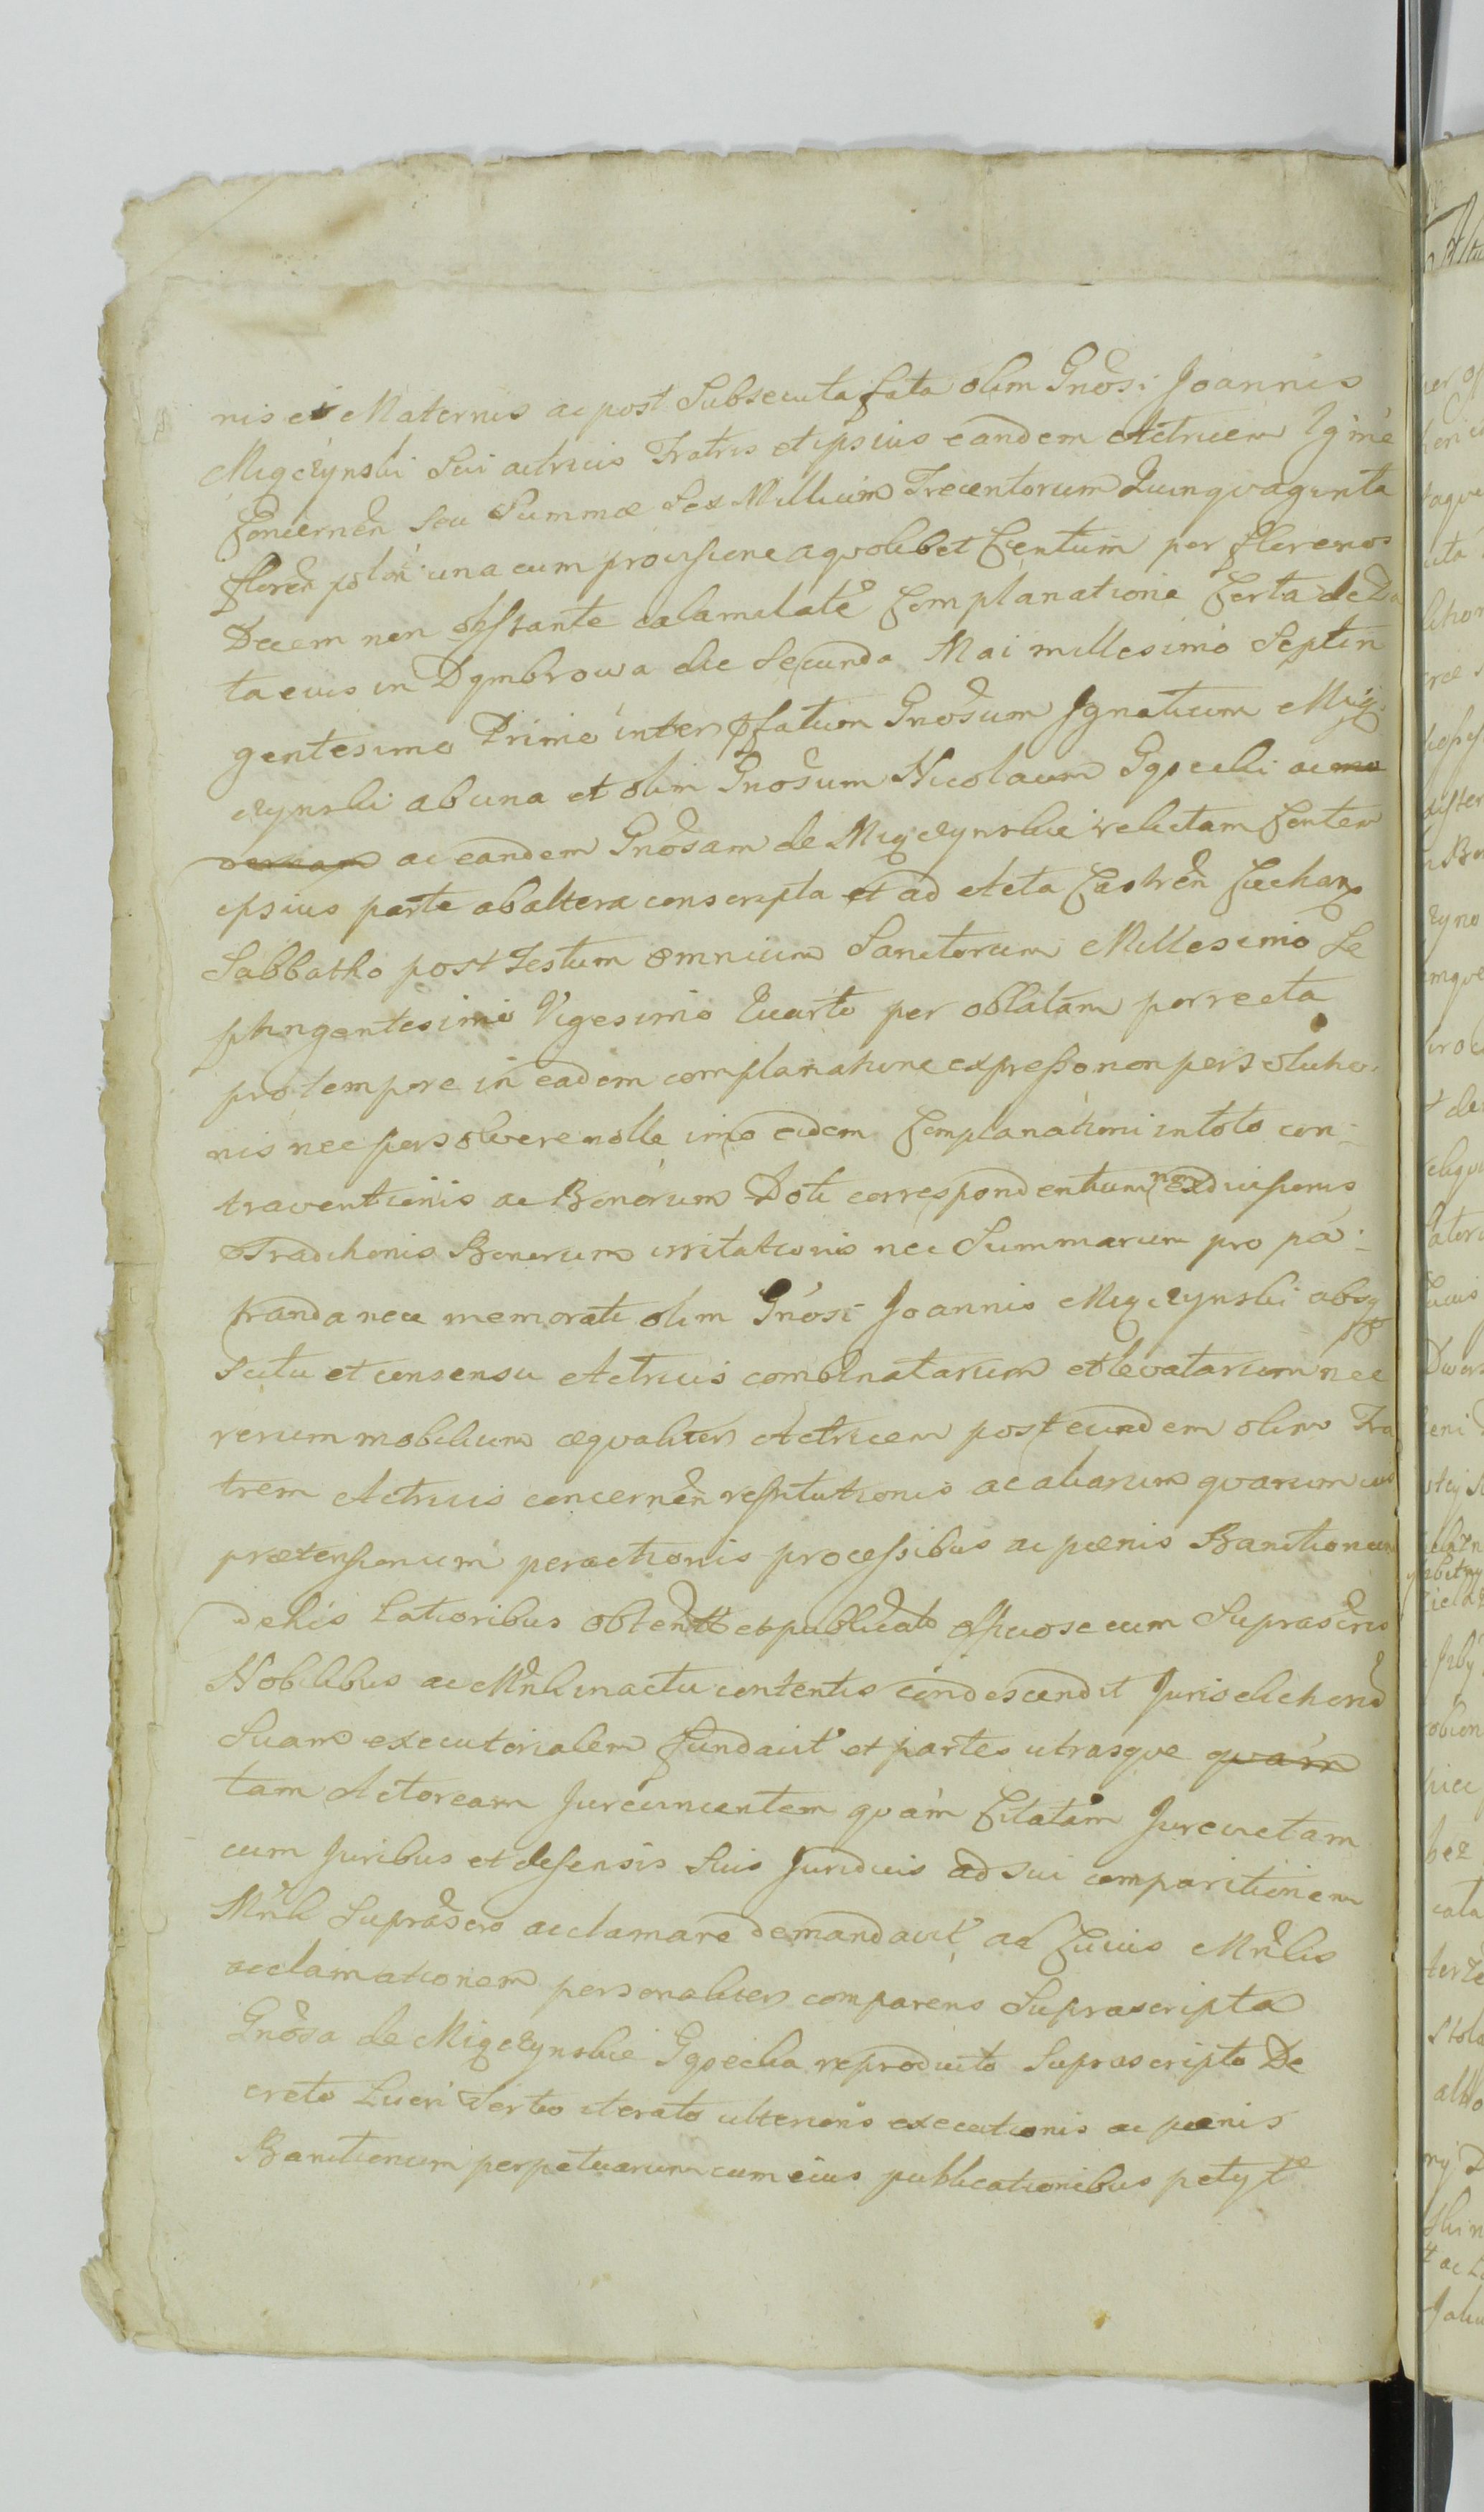 nis et Maternis ac post Subsecuta fata olim Gnosi Joannis
Miączynski Sui actricis Fratris et ipsius eandem Actricem
Concernen seu Summæ Sex Millium Trecentorum Quinquaginta
floren polon una cum provisione a quolibet Centum per florenos
Decem non obstante calamitate Complanatione Certa de Da
ta eius in Dąmbrowa die Secunda Mai millesimo Septin
gentesimo Primo inter pffatum Gnosum Ignatium Mią
czynski ab una et olim Gnosum Nicolaum Gąsecki ac
ac eandem Gnosam de Miączynskie relictam Conter
ipsius parte ab altera conscripta et ad Acta Castren
Sabbatho post Festum omnium Sanctorum Millesimo Se
ptingentesimo Vigesimo Quarto per oblatam porrecta
pro tempore in eadem complanatione expresso non persolutio
nis nec persolvere nolle imo eidem Complanationi in toto con-
traventionis ac Bonorum Doti correspondentium non exdivisionis
Traditionis Bonorum irritationis nec Summarum pro pa-
tranda nece memorati olim Gnosi Joannis Miączynski absq
scitu et consensu Actricis combinatarum et levatarum nec
rerum mobilium æqualiter Actricem post eundem olim Fra
trem Actricis concernen restitutionis ac aliarum quarumvis
prætensionum peractionis processibus ac pœnis Bannitionum
de his lationibus obtent et publicat officiose cum Suprascris
Nobilibus ac Mnli in actu contentis condescendit Jurisdictiond
Suam executorialem fundavit et partes utrasque quam
tam Actoream Jurevincentem quam Citatam Jurevictam
cum Juribus et defensis Suis Juridicis ad sui comparitionem
Mnli Suprascro acclamare demandavit, ad Cuius Mnlis
acclamationem personaliter comparens Suprascripta
Gnosa de Miączynskie Gąsecka reproducto Suprascripto De
creto Lucri Tertio iterato ulterioris executionis ac pœnis
Bannitionum perpetuarum cum eius publicationibus petyt